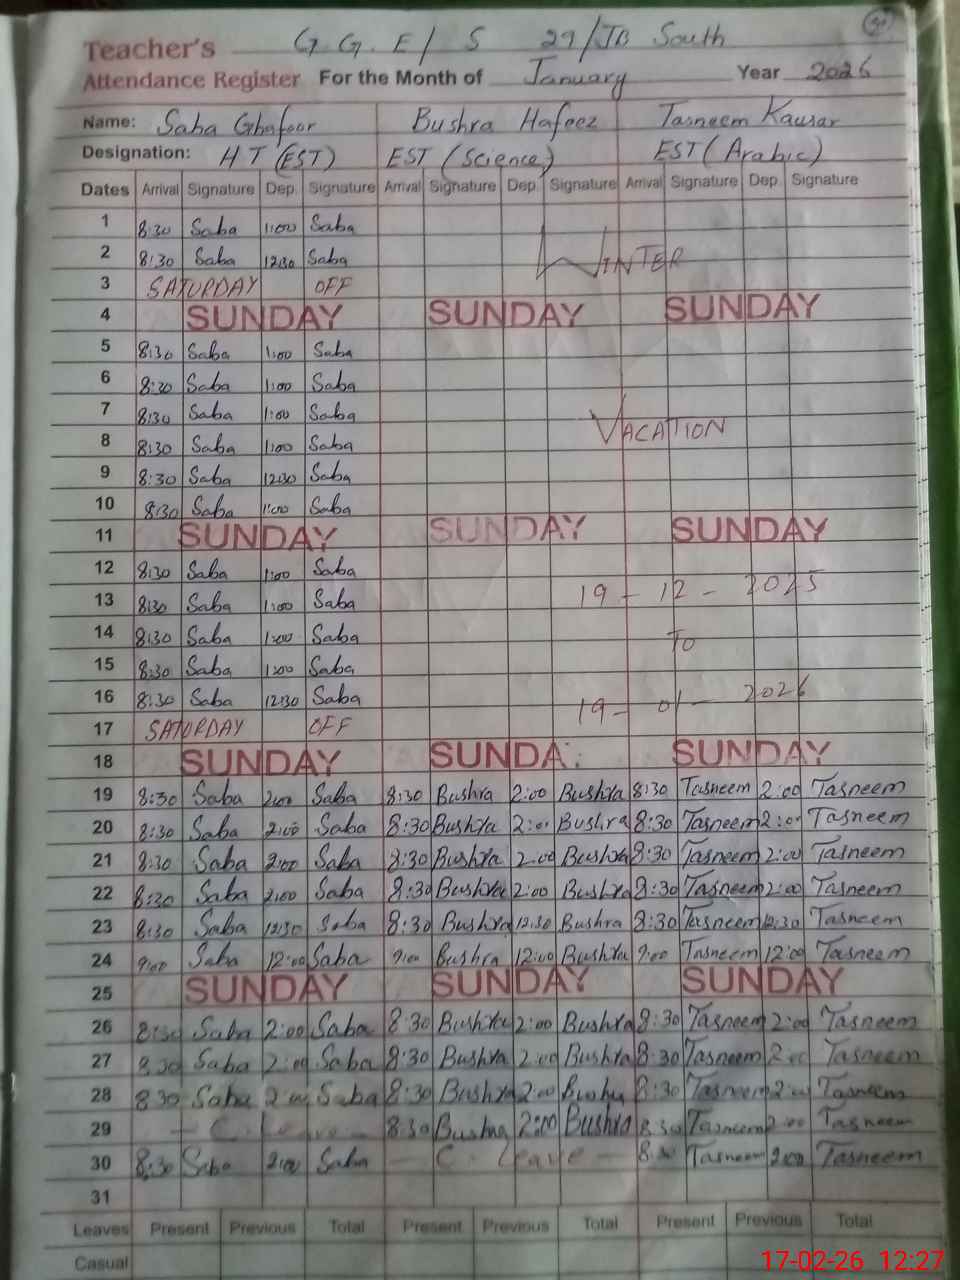 30
Teacher's G.G.E/S 29/JB South
Attendance Register For the Month of January Year 2026
Name: Saba Ghafoor Bushra Hafeez Tasneem Kausar
Designation: HT (EST) EST (Science) EST (Arabic)
Dates Arrival Signature Dep. Signature Arrival Signature Dep. Signature Arrival Signature Dep. Signature
1 8:30 Saba 1:00 Saba
2 8:30 Saba 12:30 Saba WINTER
3 SATURDAY OFF
4 SUNDAY SUNDAY SUNDAY
5 8:30 Saba 1:00 Saba
6 8:30 Saba 1:00 Saba
7 8:30 Saba 1:00 Saba
8 8:30 Saba 1:00 Saba VACATION
9 8:30 Saba 12:30 Saba
10 8:30 Saba 1:00 Saba
11 SUNDAY SUNDAY SUNDAY
12 8:30 Saba 1:00 Saba
13 8:30 Saba 1:00 Saba 19 - 12 - 2025
14 8:30 Saba 1:00 Saba To
15 8:30 Saba 1:00 Saba
16 8:30 Saba 12:30 Saba 19 - 01 - 2026
17 SATURDAY OFF
18 SUNDAY SUNDA SUNDAY
19 8:30 Saba 2:00 Saba 8:30 Bushra 2:00 Bushra 8:30 Tasneem 2:00 Tasneem
20 8:30 Saba 2:00 Saba 8:30 Bushra 2:00 Bushra 8:30 Tasneem 2:00 Tasneem
21 8:30 Saba 2:00 Saba 8:30 Bushra 2:00 Bushra 8:30 Tasneem 2:00 Tasneem
22 8:30 Saba 2:00 Saba 8:30 Bushra 2:00 Bushra 8:30 Tasneem 2:00 Tasneem
23 8:30 Saba 12:30 Saba 8:30 Bushra 12:30 Bushra 8:30 Tasneem 12:30 Tasneem
24 9:00 Saba 12:00 Saba 9:00 Bushra 12:00 Bushra 9:00 Tasneem 12:00 Tasneem
25 SUNDAY SUNDAY SUNDAY
26 8:30 Saba 2:00 Saba 8:30 Bushra 2:00 Bushra 8:30 Tasneem 2:00 Tasneem
27 8:30 Saba 2:00 Saba 8:30 Bushra 2:00 Bushra 8:30 Tasneem 2:00 Tasneem
28 8:30 Saba 2:00 Saba 8:30 Bushra 2:00 Bushra 8:30 Tasneem 2:00 Tasneem
29 - C. Leave - 8:30 Bushra 2:00 Bushra 8:30 Tasneem 2:00 Tasneem
30 8:30 Saba 2:00 Saba - C. Leave - 8:30 Tasneem 2:00 Tasneem
31
Leaves Present Previous Total Present Previous Total Present Previous Total
Casual
17-02-26 12:27